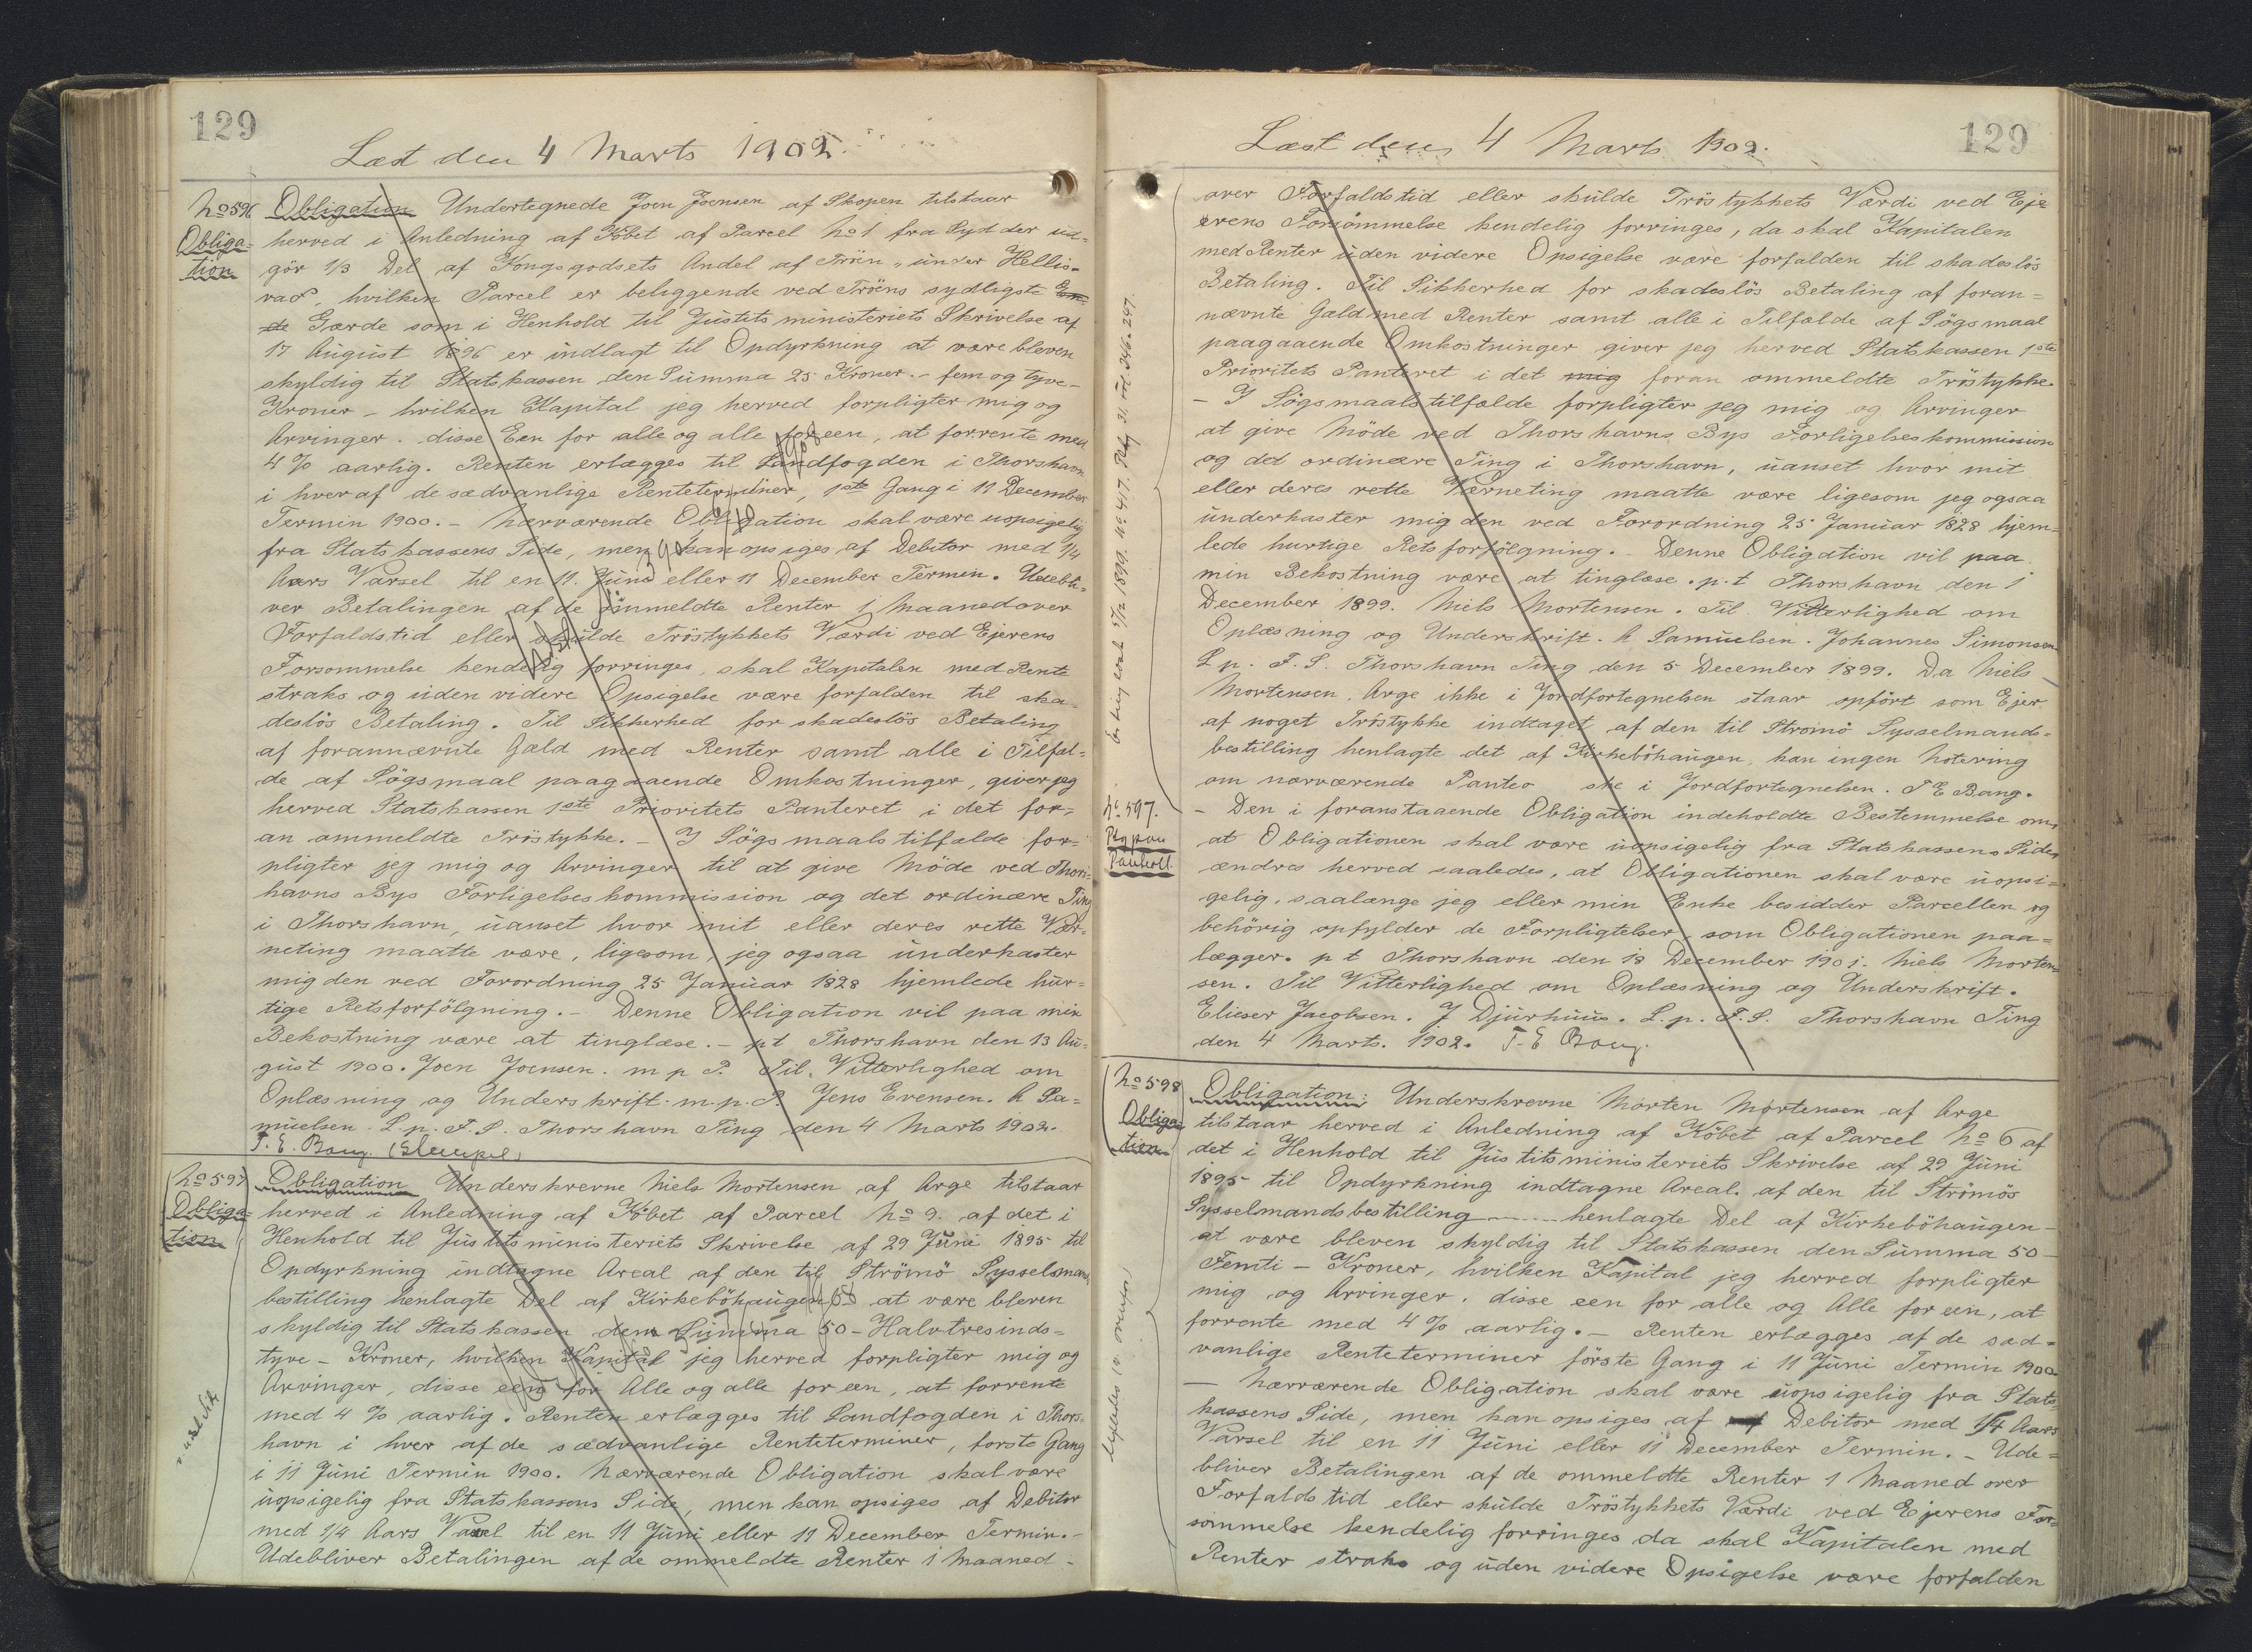 129
Læst den 4 Marts 1902.
No 596
Obliga-
tion
Obligation Undertegnede Joen Joensen af Skopen tilstaar
herved i Anledning af Köbet af Parcel No 1 fra Syd der ud-
gör 1/3 Del af Kongsgodsets Andel af Tröen, under Hellis-
vad, hvilken Parcel er beliggende ved Tröens sydligste
Gærde som i Henhold til Justitsministeriets Skrivelse af
17 August 1896 er indlagt til Opdyrkning at være bleven
skyldig til Statskassen den Summa 25 Kroner. - fem og tyve -
Kroner - hvilken Kapital jeg herved forpligter mig og
Arvinger. disse Een for alle og alle for een, at forrente med
4 % aarlig. Renten erlægges til Landfogden i Thorshavn
i hver af de sædvanlige Renteterminer, 1ste Gang i 11 December
Termin 1900. - Nærværende Obligation skal være uopsigelig
fra Statskassens Side, men kan opsiges af Debitor med 1/4
Aars Varsel til en 11. Juni eller 11 December Termin. Udebli-
ver Betalingen af de ommeldte Renter 1 Maaned over
Forfaldstid eller skulde Tröstykkets Værdi ved Ejerens
Forsommelse kendelig forringes, skal Kapitalen med Rente
straks og uden videre Opsigelse være forfalden til ska-
deslös Betaling. Til Sikkerhed for skadeslös Betaling
af forannævnte Gæld med Renter samt alle i Tilfæl-
de af Sögsmaal paagaaende Omkostninger, giver jeg
herved Statskassen 1ste Prioritets Panteret i det for-
an ommeldte Tröstykke. - I Sögsmaalstilfælde for-
pligter jeg mig og Arvinger til at give Möde ved Thors-
havns Bys Forligelseskommission og det ordinære Ting
i Thorshavn, uanset hvor mit eller deres rette Vær-
neting maatte være, ligesom jeg ogsaa underkaster
mig den ved Forordning 25 Januar 1828 hjemlede hur-
tige Retsforfölgning. - Denne Obligation vil paa min
Bekostning være at tinglæse. - pt Thorshavn den 13 Au-
gust 1900. Joen Joensen. m p P. Til Vitterlighed om
Oplæsning og Underskrift. m. p. P. Jens Evensen. R Sa-
muelsen. L. p. F. S. Thorshavn Ting den 4 Marts 1902.
T. E. Bang. (Stempel)
No 597
Obliga-
tion
Obligation Underskrevne Niels Mortensen af Arge tilstaar
herved i Anledning af Köbet af Parcel No 9. af det i
Henhold til Justitsministeriets Skrivelse af 29 Juni 1895 til
Opdyrkning indtagne Areal af den til Strömö Sysselmands
bestilling henlagte Del af Kirkeböhaugen at være bleven
skyldig til Statskassen den Summa 50 - Halvtresinds-
tyve - Kroner, hvilken Kapital jeg herved forpligter mig og
Arvinger, disse een for Alle og alle for een, at forrente
med 4 % aarlig. Renten erlægges til Landfogden i Thors-
havn i hver af de sædvanlige Renteterminer, forste Gang
i 11 Juni Termin 1900. Nærværende Obligation skal være
uopsigelig fra Statskassens Side, men kan opsiges af Debitor
med 1/4 Aars Varsel til en 11 Juni eller 11 December Termin. -
Udebliver Betalingen af de ommeldte Renter 1 Maaned -
129
Læst den 4 Marts 1902.
over Forfaldstid eller skulde Tröstykkets Værdi ved Eje
erens Forsömmelse kendelig forringes, da skal Kapitalen
med Renter uden videre Opsigelse være forfalden til skadeslös
Betaling. Til Sikkerhed for skadeslös Betaling af foran-
nævnte Gæld med Renter samt alle i Tilfælde af Sögsmaal
paagaaende Omkostninger giver jeg herved Statskassen 1ste
Prioritets Panteret i det mig foran ommeldte Tröstykke.
- I Sögsmaalstilfælde forpligter jeg mig og Arvinger
at give Möde ved Thorshavns Bys Forligelseskommission
og det ordinære Ting i Thorshavn, uanset hvor mit
eller deres rette Værneting maatte være ligesom jeg ogsaa
underkaster mig den ved Forordning 25 Januar 1828 hjem-
lede hurtige Retsforfölgning. - Denne Obligation vil paa
min Bekostning være at tinglæse. p. t Thorshavn den 1
December 1899. Niels Mortensen. Til Vitterlighed om
Oplæsning og Underskrift. R Samuelsen. Johannes Simonsen
L p. F. S. Thorshavn Ting den 5 December 1899. Da Niels
Mortensen. Arge ikke i Jordfortegnelsen staar opfört som Ejer
af noget Tröstykke indtaget af den til Strömö Sysselmands-
bestilling henlagte det af Kirkeböhaugen, kan ingen Notering
om nærværende Panteo ske i Jordfortegnelsen. T E Bang.
No 597.
Ptgpaa
- Den i foranstaaende Obligation indeholdte Bestemmelse om,
at Obligationen skal være uopsigelig fra Statskassens Side,
ændres herved saaledes, at Obligationen skal være uopsi-
gelig, saalænge jeg eller min Enke besidder Parcellen og
behörig opfylder de Forpligtelser, som Obligationen paa-
lægger. p t Thorshavn den 18 December 1901. Niels Morten-
sen. Til Vitterlighed om Oplæsning og Underskrift.
Elieser Jacobsen. J Djurhuus. L. p. F. S. Thorshavn Ting
den 4 Marts. 1902. T. E Bang.
No 598
Obliga-
tion
Obligation: Underskrevne Morten Mortensen af Arge
tilstaar herved i Anledning af Köbet af Parcel No 6 af
det i Henhold til Justitsministeriets Skrivelse af 29 Juni
1895 til Opdyrkning indtagne Areal. af den til Strömös
Sysselmandsbestilling henlagte Del af Kirkeböhaugen -
at være bleven skyldig til Statskassen den Summa 50 -
Femti - Kroner, hvilken Kapital jeg herved forpligter
mig og Arvinger. disse een for alle og Alle for een, at
forrente med 4 % aarlig. - Renten erlægges af de sæd-
vanlige Renteterminer förste Gang i 11 Juni Termin 1900
- Nærværende Obligation skal være uopsigelig fra Stats-
kassens Side, men kan opsiges af Debitor med 1/4 Aars
Varsel til en 11 Juni eller 11 December Termin. - Ude-
bliver Betalingen af de ommeldte Renter 1 Maaned over
Forfaldstid eller skulde Tröstykkets Værdi ved Ejerens For-
sömmelse kendelig forringes da skal Kapitalen med
Renter straks og uden videre Opsigelse være forfalden